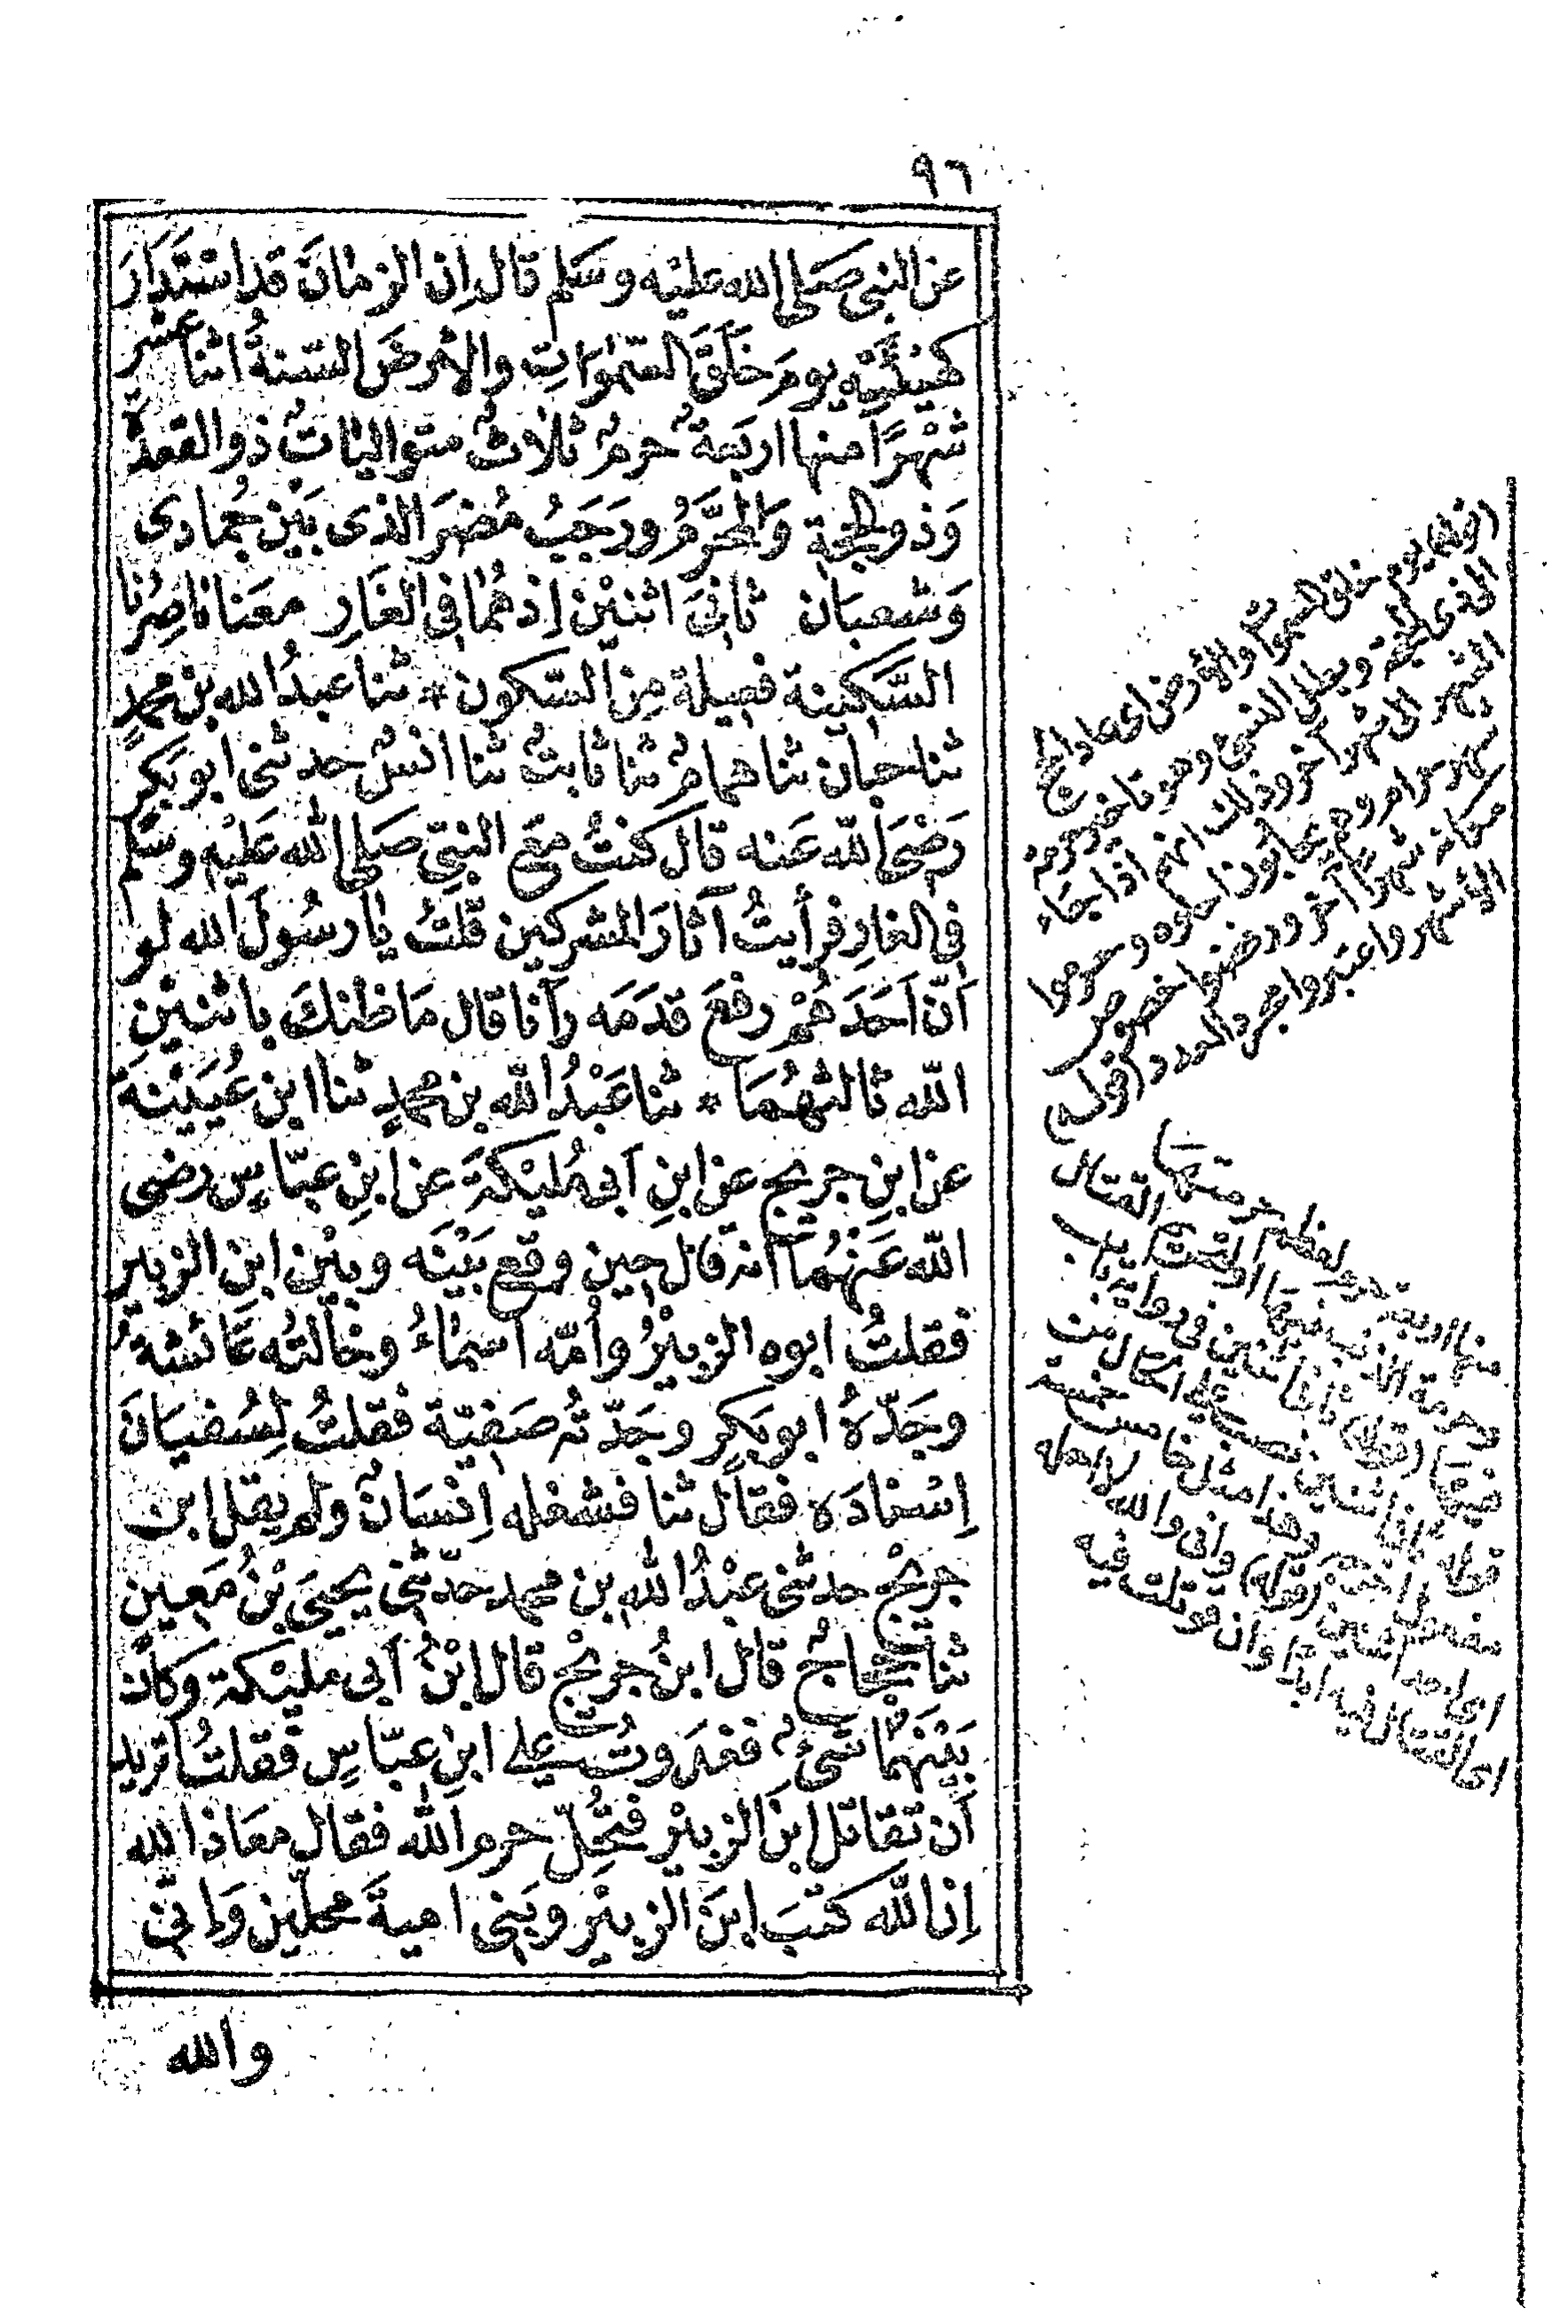 ٩٦
عن النبى صَلى الله عليْه وسَلم قال اِن الزمانَ قد اسْتَدَارَ
كهَيْئَتِه يومَ خَلَقَ السّمٰوَاتِ والاَرضَ السّنةُ اثنا عشر
شهْرًا منها اربَعةٌ حرمٌ ثلاثٌ متوالياتٌ ذو القعدة
وَذو الحجة وَالمحَرَّمُ ورَجَبُ مُضَرَ الذى بَيْن جُمادى
وَشعبَان ثانىَ اثنيْن اِذ هُمَا فى الغَارِ معَنا ناصِرُنا
السَّكِينة فعيلة مِن السّكون * ثنا عبدُ الله بن محمدٍ
ثنا حبان ثنا همامٌ ثنا ثابتٌ ثنا انسٌ حدثنى ابو بَكرٍ
رَضىَ الله عَنه قال كنتُ مَعَ النبيِّ صَلى الله عَليْه وسَلم
فى الغارِ فرأيتُ آثارَ المشركين قلتُ يا رسُولَ الله لو
اَنّ اَحَدَهُمْ رفعَ قدَمَه رَآنا قال مَا ظنكَ باثنيْنِ
الله ثالثهُمَا * ثنا عَبْدُ الله بن محمدٍ ثنا ابن عُيَيْنة
عن ابنِ جريج عن ابنِ اَبى مُليْكةَ عن ابنِ عبّاسٍ رضى
الله عَنْهُمَا انه قال حِين وقع بَيْنَه وبيْن ابن الزبير
فقلتُ ابوه الزبيْرُ واُمّه اسْمَاءُ وخالتُه عَائشةُ
وجَدّهُ ابو بَكرٍ وجَدّتُه صَفيّة فقلتُ لِسُفيَانَ
اِسْنادَه فقال ثنا فشغله اِنسَانٌ ولم يقل ابن
جريْج حدثنى عبْدُ الله بن محمد حدّثنى يحيىَ بْنُ مَعِين
ثنا حجّاجٌ قال ابنُ جريْج قال ابْنُ اَبى مليْكة وكان
بَيْنَهُمَا شَىْءٌ فغدَوتُ على ابنِ عبّاسٍ فقلتُ اتريد
اَن تقاتل ابنَ الزبيْر فتُحِلّ حرم الله فقال معَاذ الله
اِن الله كتبَ ابنَ الزبيْر وبَنى امية محلّين وَاِنّى
والله
(قوله) يوم خلق السموات والارض اى عاد الحج
الى ذى الحجة وبطل النسئ وهو تاخير حرمة
الشهر الى شهر آخر وذلك انهم اذا جاء
شهر حرام وهم محاربون احلوه وحرموا
مكانه شهرا آخر ورفضوا خصوص
الاشهر واعتبروا مجرد العدد (قوله)
منها اربعة حرم لعظم حرمتها
وحرمة الذنب فيها او لتحريم القتال
فيها (قوله) ثانى اثنين فى رواية باب
قوله ثانى اثنين نصب على الحال من
مفعول اخرجه وهذا مثل خامس خمسة
اى احد اثنين (قوله) وانى والله لا احله
اى القتال فيه ابدا وان قوتلت فيه